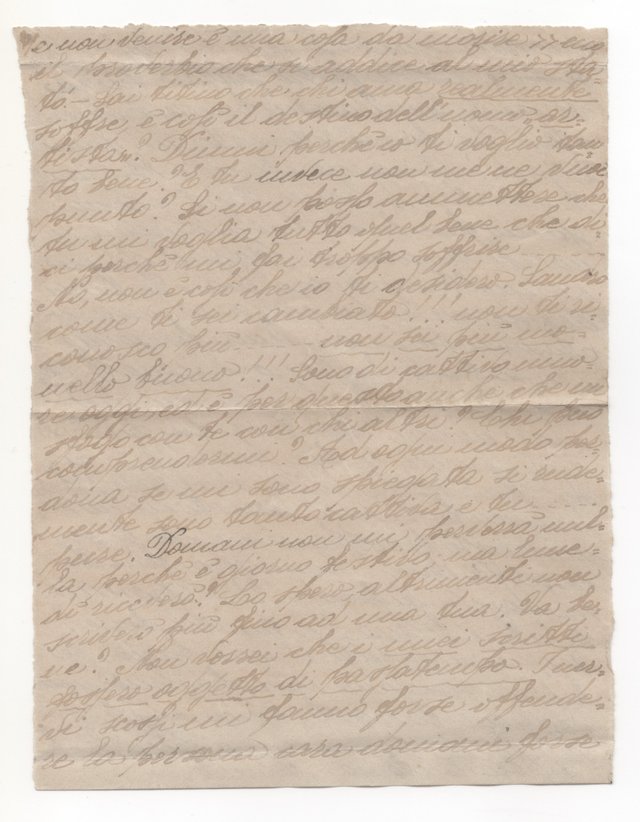 e non venire è una cosa da morire" ... 
il proverbio che si addice al mio sta=
to. Sai ... che chi ama realmente
soffre, è così il destino dell'uomo ar=
tista? Dimmi perchè io ti voglio tan=
to bene? E tu invece non me ne vuoi
punto? Si non posso ammettere che
tu mi voglia tutto quel bene che di=
ci perchè mi fai troppo soffrire
No, non è così che io ti desidero. Sandro
come ti sei cambiato!!! non ti ri=
conosco più ...... non sei più mo=
nello buono!!! Sono di cattivo umo=
re oggi ed è per questo anche che mi
sfogo con te con chi altri? Chi può
comprendermi? Ad ogni modo per=
dona se mi sono spiegata si rude=
mente sono tanto cattiva e tu .....
pure. Domani non mi perverrà nul=
la perchè è giorno festivo, ma lune=
dì riceverò? Lo spero, altrimenti non
scriverò più fino ad una tua. Va be=
ne? Non vorrei che i miei scritti
fossero oggetto di passatempo. I ner=
vi scossi mi fanno forse offende=
re la persona cara domani forse